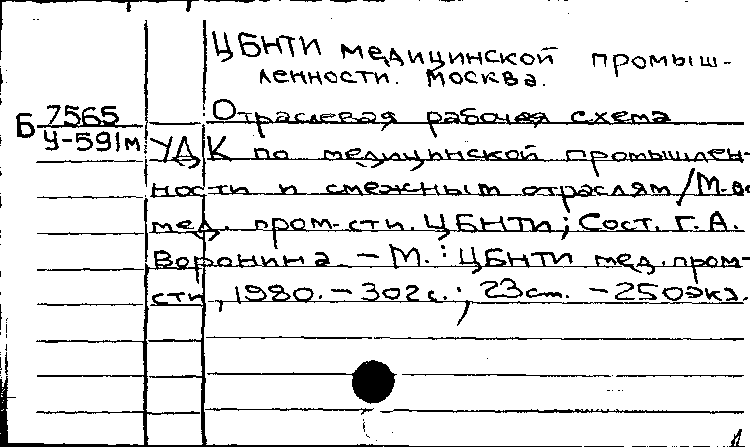 ЦБНТИ медицинской промыш-
ленности. Москва.
Б 7565
У-591м
Отраслевая рабочая схема
УДК по медицинской промышлен-
ности и смежным отраслям/М-во
мед. пром-сти. ЦБНТИ; Сост. Г. А.
Воронина. – М. : ЦБНТИ мед. пром-
сти, 1980. – 302 с. ; 23 см. – 250 экз.